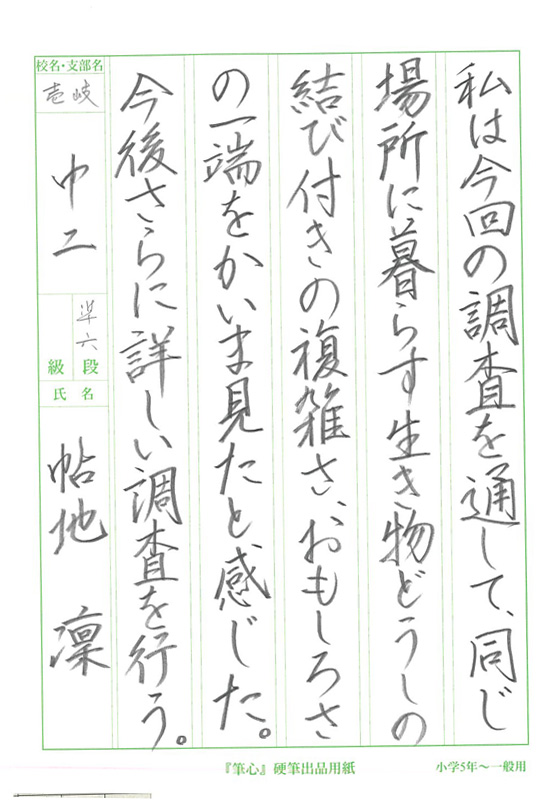 私は今回の調査を通して、同じ
場所に暮らす生き物どうしの
結び付きの複雑さ、おもしろさ
の一端をかいま見たと感じた。
今後さらに詳しい調査を行う。
校名・支部名
壱岐
中二
準六
級段
氏名
帖地 凜
『筆心』硬筆出品用紙
小学5年〜一般用